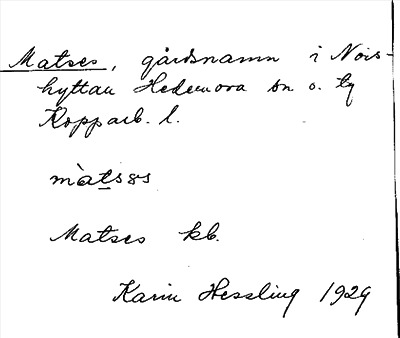 Matses, gårdsnamn i Nors-
hyttan Hedemora sn o. tg
Kopparb. l.
màtsəs
Matses kb.
Karin Hessling 1929